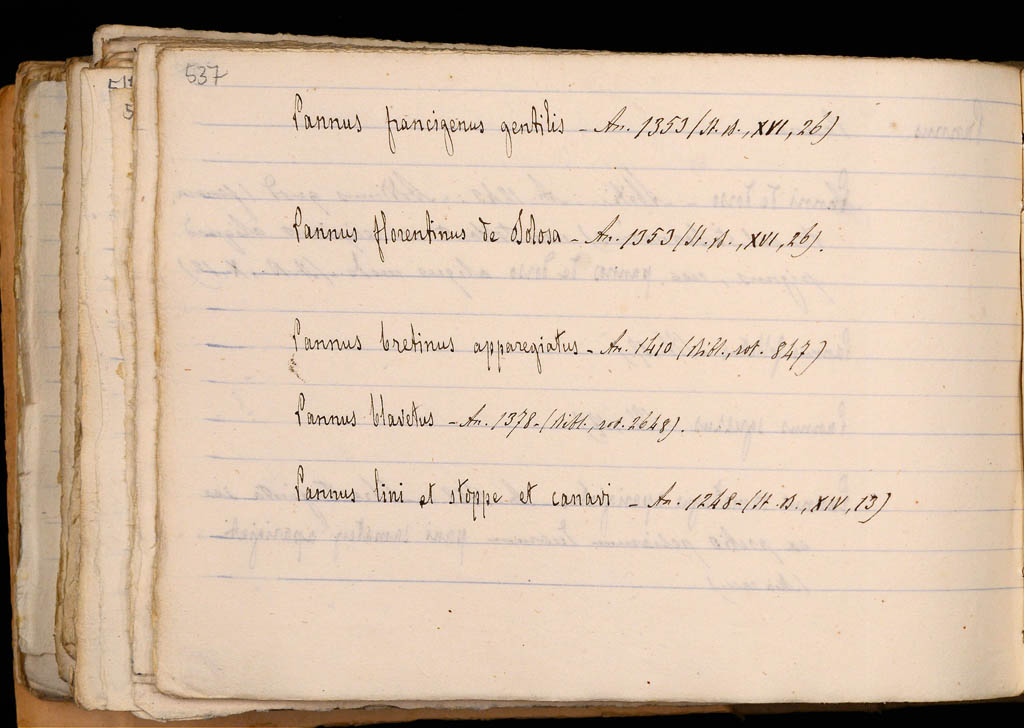 537
Pannus francigenus gentilis - An. 1353 (St. B., XVI, 26)
Pannus florentinus de Dolosa - An. 1353 (St. B., XVI, 26).
Pannus bretinus apparegiatus - An. 1410 (Bibl., rot. 847)
Pannus blavetus - An. 1378 - (Bibl., rot. 2648).
Pannus lini et stoppe et canavi - An. 1248 - (St. B., XIV, 13)